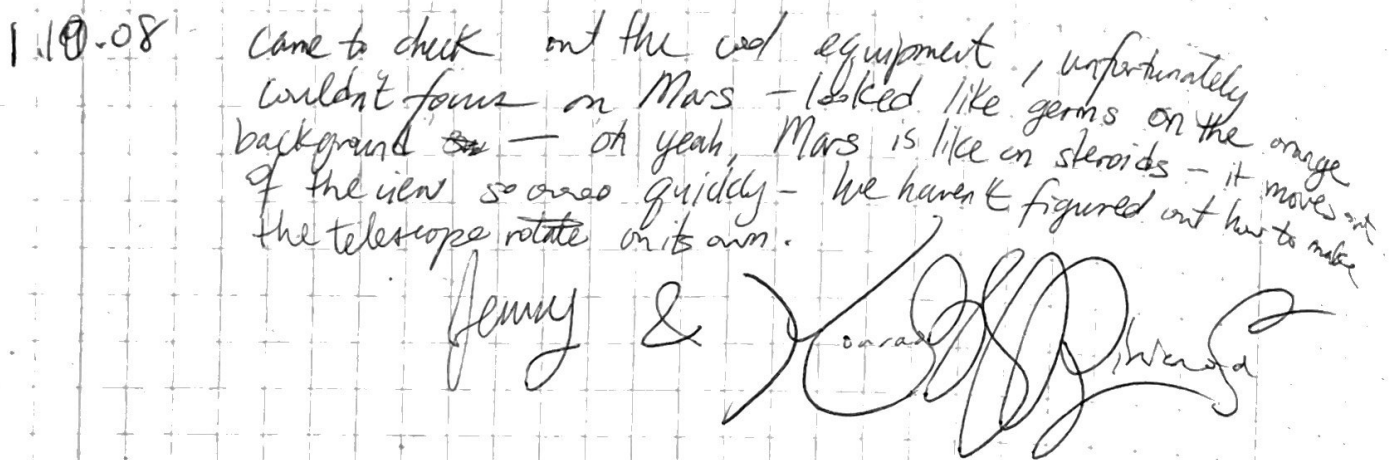 1.10.08 came to check out the cool equipment, unfortunately
couldn't focus on Mars - looked like germs on the orange
background — oh yeah, Mars is like on steroids - it moves out
of the view so quickly - We haven't figured out how to make
the telescope rotate on its own.
Jenny & Konrad